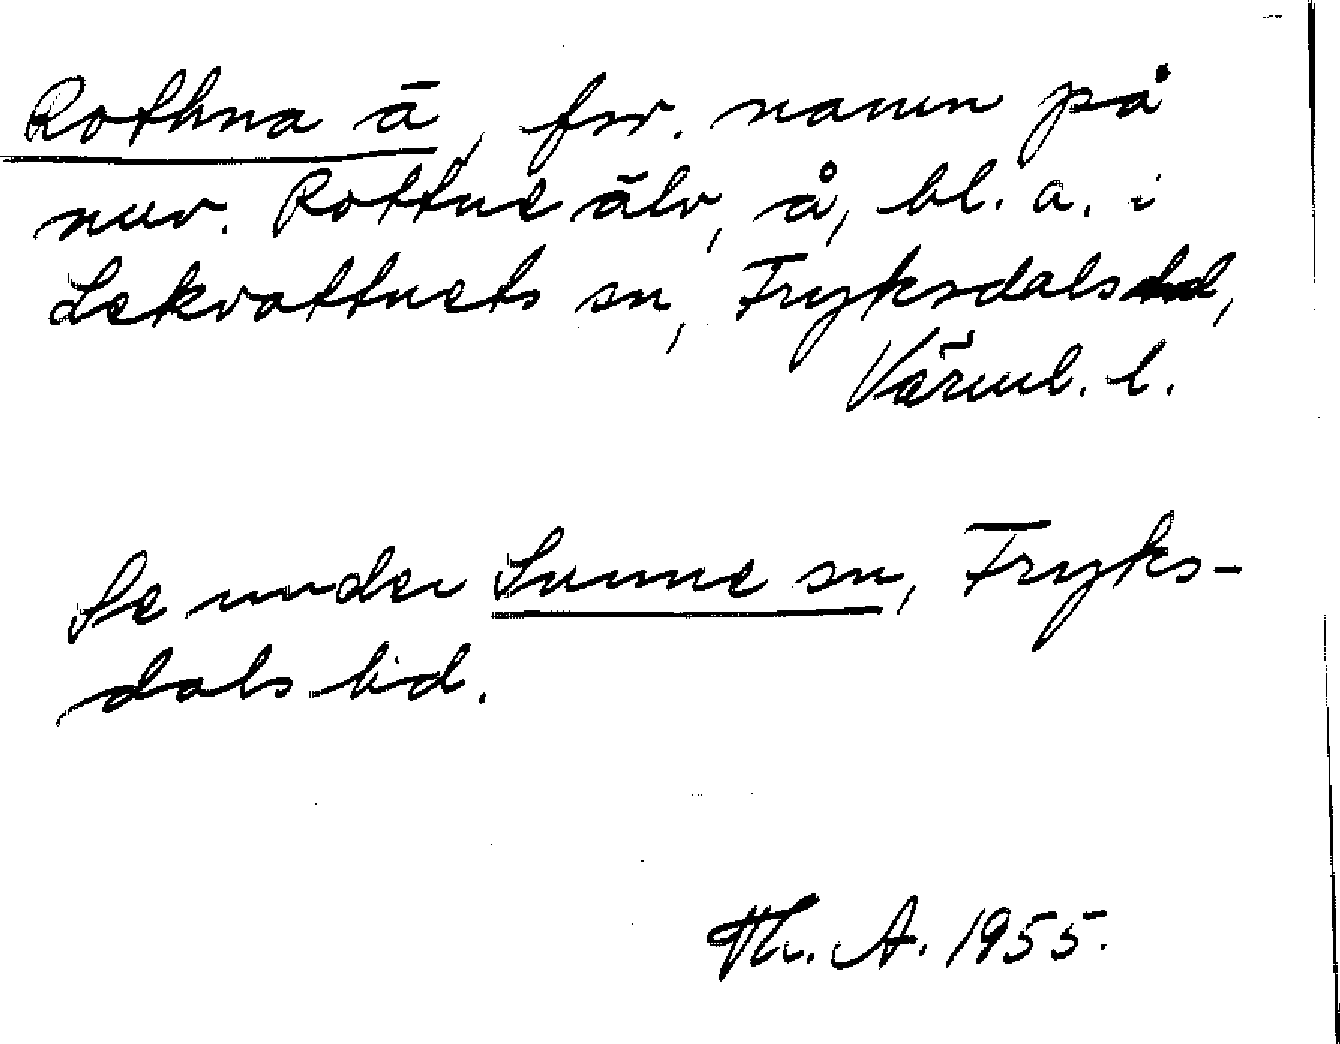 Rothna ā, fsv. namn på
nuv. Rottne älv, å, bl. a. i
Lekvattnets sn, Fryksdals hd,
Värml. l.
Se under Sunne sn, Fryks-
dals hd.
Th. A. 1955.